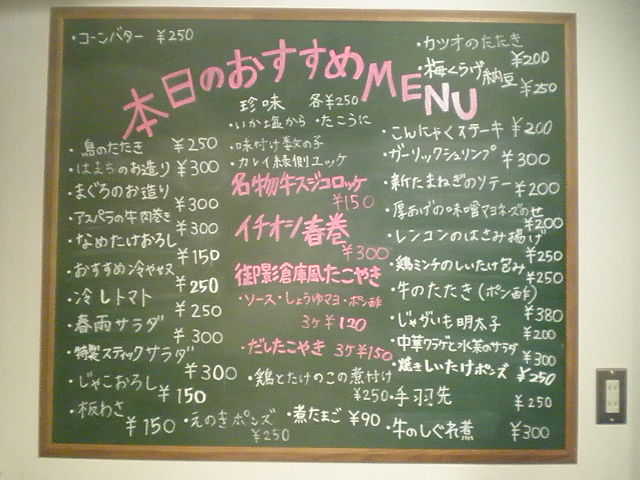 ・コーンバター ¥250
本日のおすすめMENU
・鳥のたたき ¥250
・はまちのお造り ¥300
・まぐろのお造り ¥300
・アスパラの牛肉巻き ¥300
・なめたけおろし ¥150
・おすすめ冷ややっこ ¥250
・冷しトマト ¥250
・春雨サラダ ¥300
・特製スティックサラダ ¥300
・じゃこおろし ¥150
・板わさ ¥150
珍味 各¥250
・いか塩から ・たこうに
・味付け数の子
・カレイ縁側ユッケ
名物牛スジコロッケ
¥150
イチオシ春巻
¥300
御影倉庫風たこやき
・ソース・しょうゆマヨ・ポン酢
3ケ ¥120
だしたこやき 3ケ¥150
・鶏とたけのこの煮付け
¥250
・えのきポンズ
¥250
・煮たまご ¥90
・カツオのたたき
¥200
・梅くらげ納豆
¥250
・こんにゃくステーキ ¥200
・ガーリックシュリンプ ¥300
・新たまねぎのソテー ¥200
・厚あげの味噌マヨネーズのせ
¥200
・レンコンのはさみ揚げ
¥250
・鶏ミンチのしいたけ包み
¥250
・牛のたたき(ポン酢)
¥380
・じゃがいも明太子
¥200
・中華クラゲと水菜のサラダ
¥300
・焼きしいたけポンズ ¥250
・手羽先 ¥250
・牛のしぐれ煮 ¥300